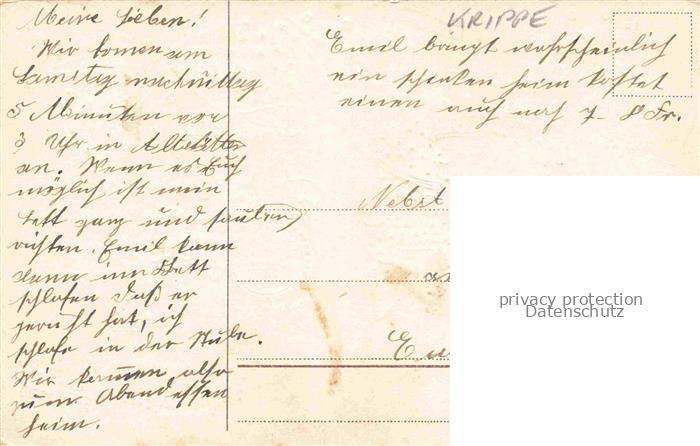 Meine Lieben!
Wir komen am
Samstag nachmittag
5 Minuten vor
3 Uhr in Altstätten
an. Wenn es Euch
möglich ist mein
Bett ganz und
richten. Emil kann
dann im Bett
schlafen daß er
geruht hat, ich
schlafe in der Stube.
Wir kommen also
zum Abendessen
heim.
KRIPPE
Emil bringt wahrscheinlich
ein schinken heim kostet
einen auch noch 7- 8 Fr.
Nebst
Eu
privacy protection
Datenschutz